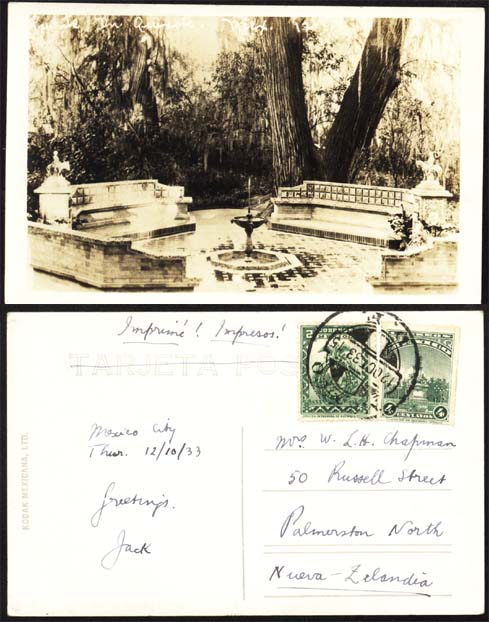 Imprimé! Impresos!
TARJETA POS
KODAK MEXICANA, LTD.
Mexico City
Thur. 12/10/33
Greetings.
Jack
2
CORREOS
MEXICO
4
CENTAVOS
Mrs. W. L. H. Chapman
50 Russell Street
Palmerston North
Nueva-Zelandia